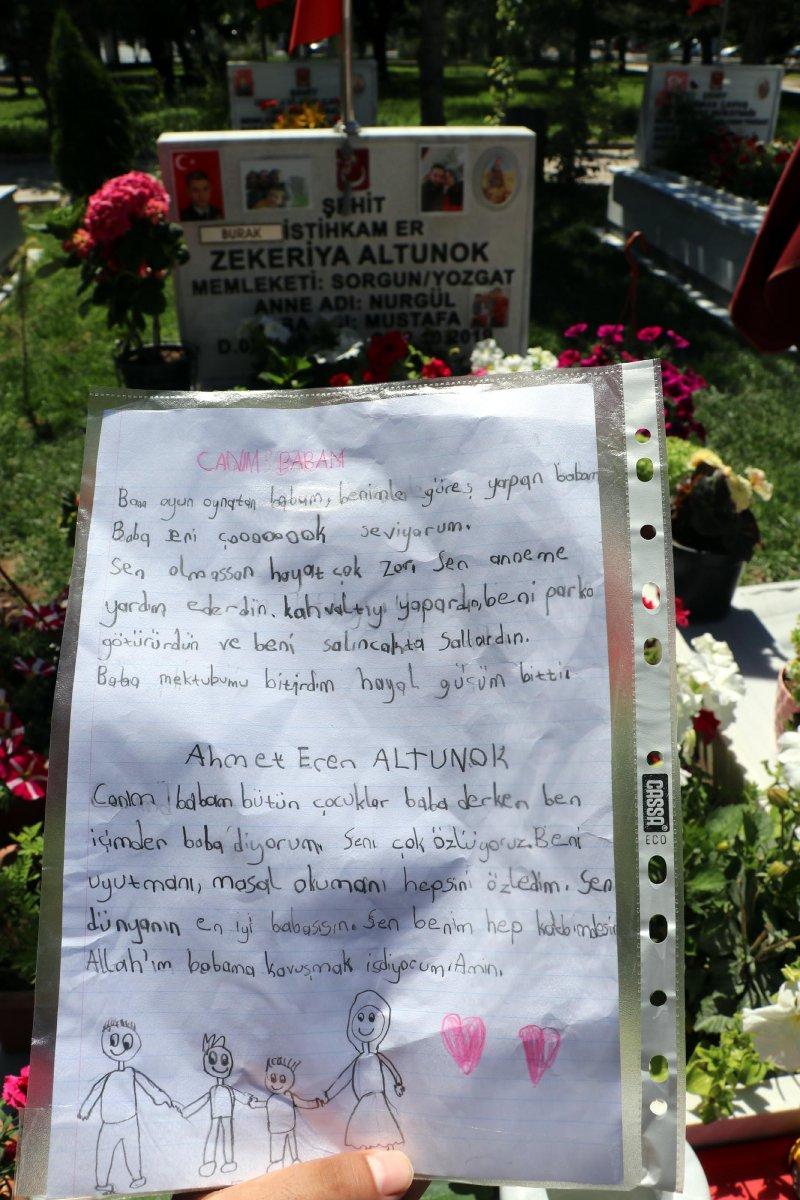 ŞEHİT
BURAK İSTİHKAM ER
ZEKERİYA ALTUNOK
MEMLEKETİ: SORGUN/YOZGAT
ANNE ADI: NURGÜL
MUSTAFA
CANIM BABAM
Bana oyun oynatan babam, benimle güreş yapan babam
Baba seni çooooook seviyorum.
Sen olmassan hayat çok zor. Sen anneme
yardım ederdin. kahvaltıyı yapardın, beni parka
götürürdün ve beni salıncakta Sallardın.
Baba mektubumu bitirdim hayal gücüm bitti.
Ahmet Eren ALTUNOK
Canım babam bütün çocuklar baba derken ben
içimden baba diyorum. Seni çok özlüyoruz. Beni
uyutmanı, masal okumanı hepsini özledim. Sen
dünyanın en iyi babasısın. Sen benim hep kalbimdesin
Allah'ım babama kavuşmak isdiyorum. Amin.
CASSA
ECO